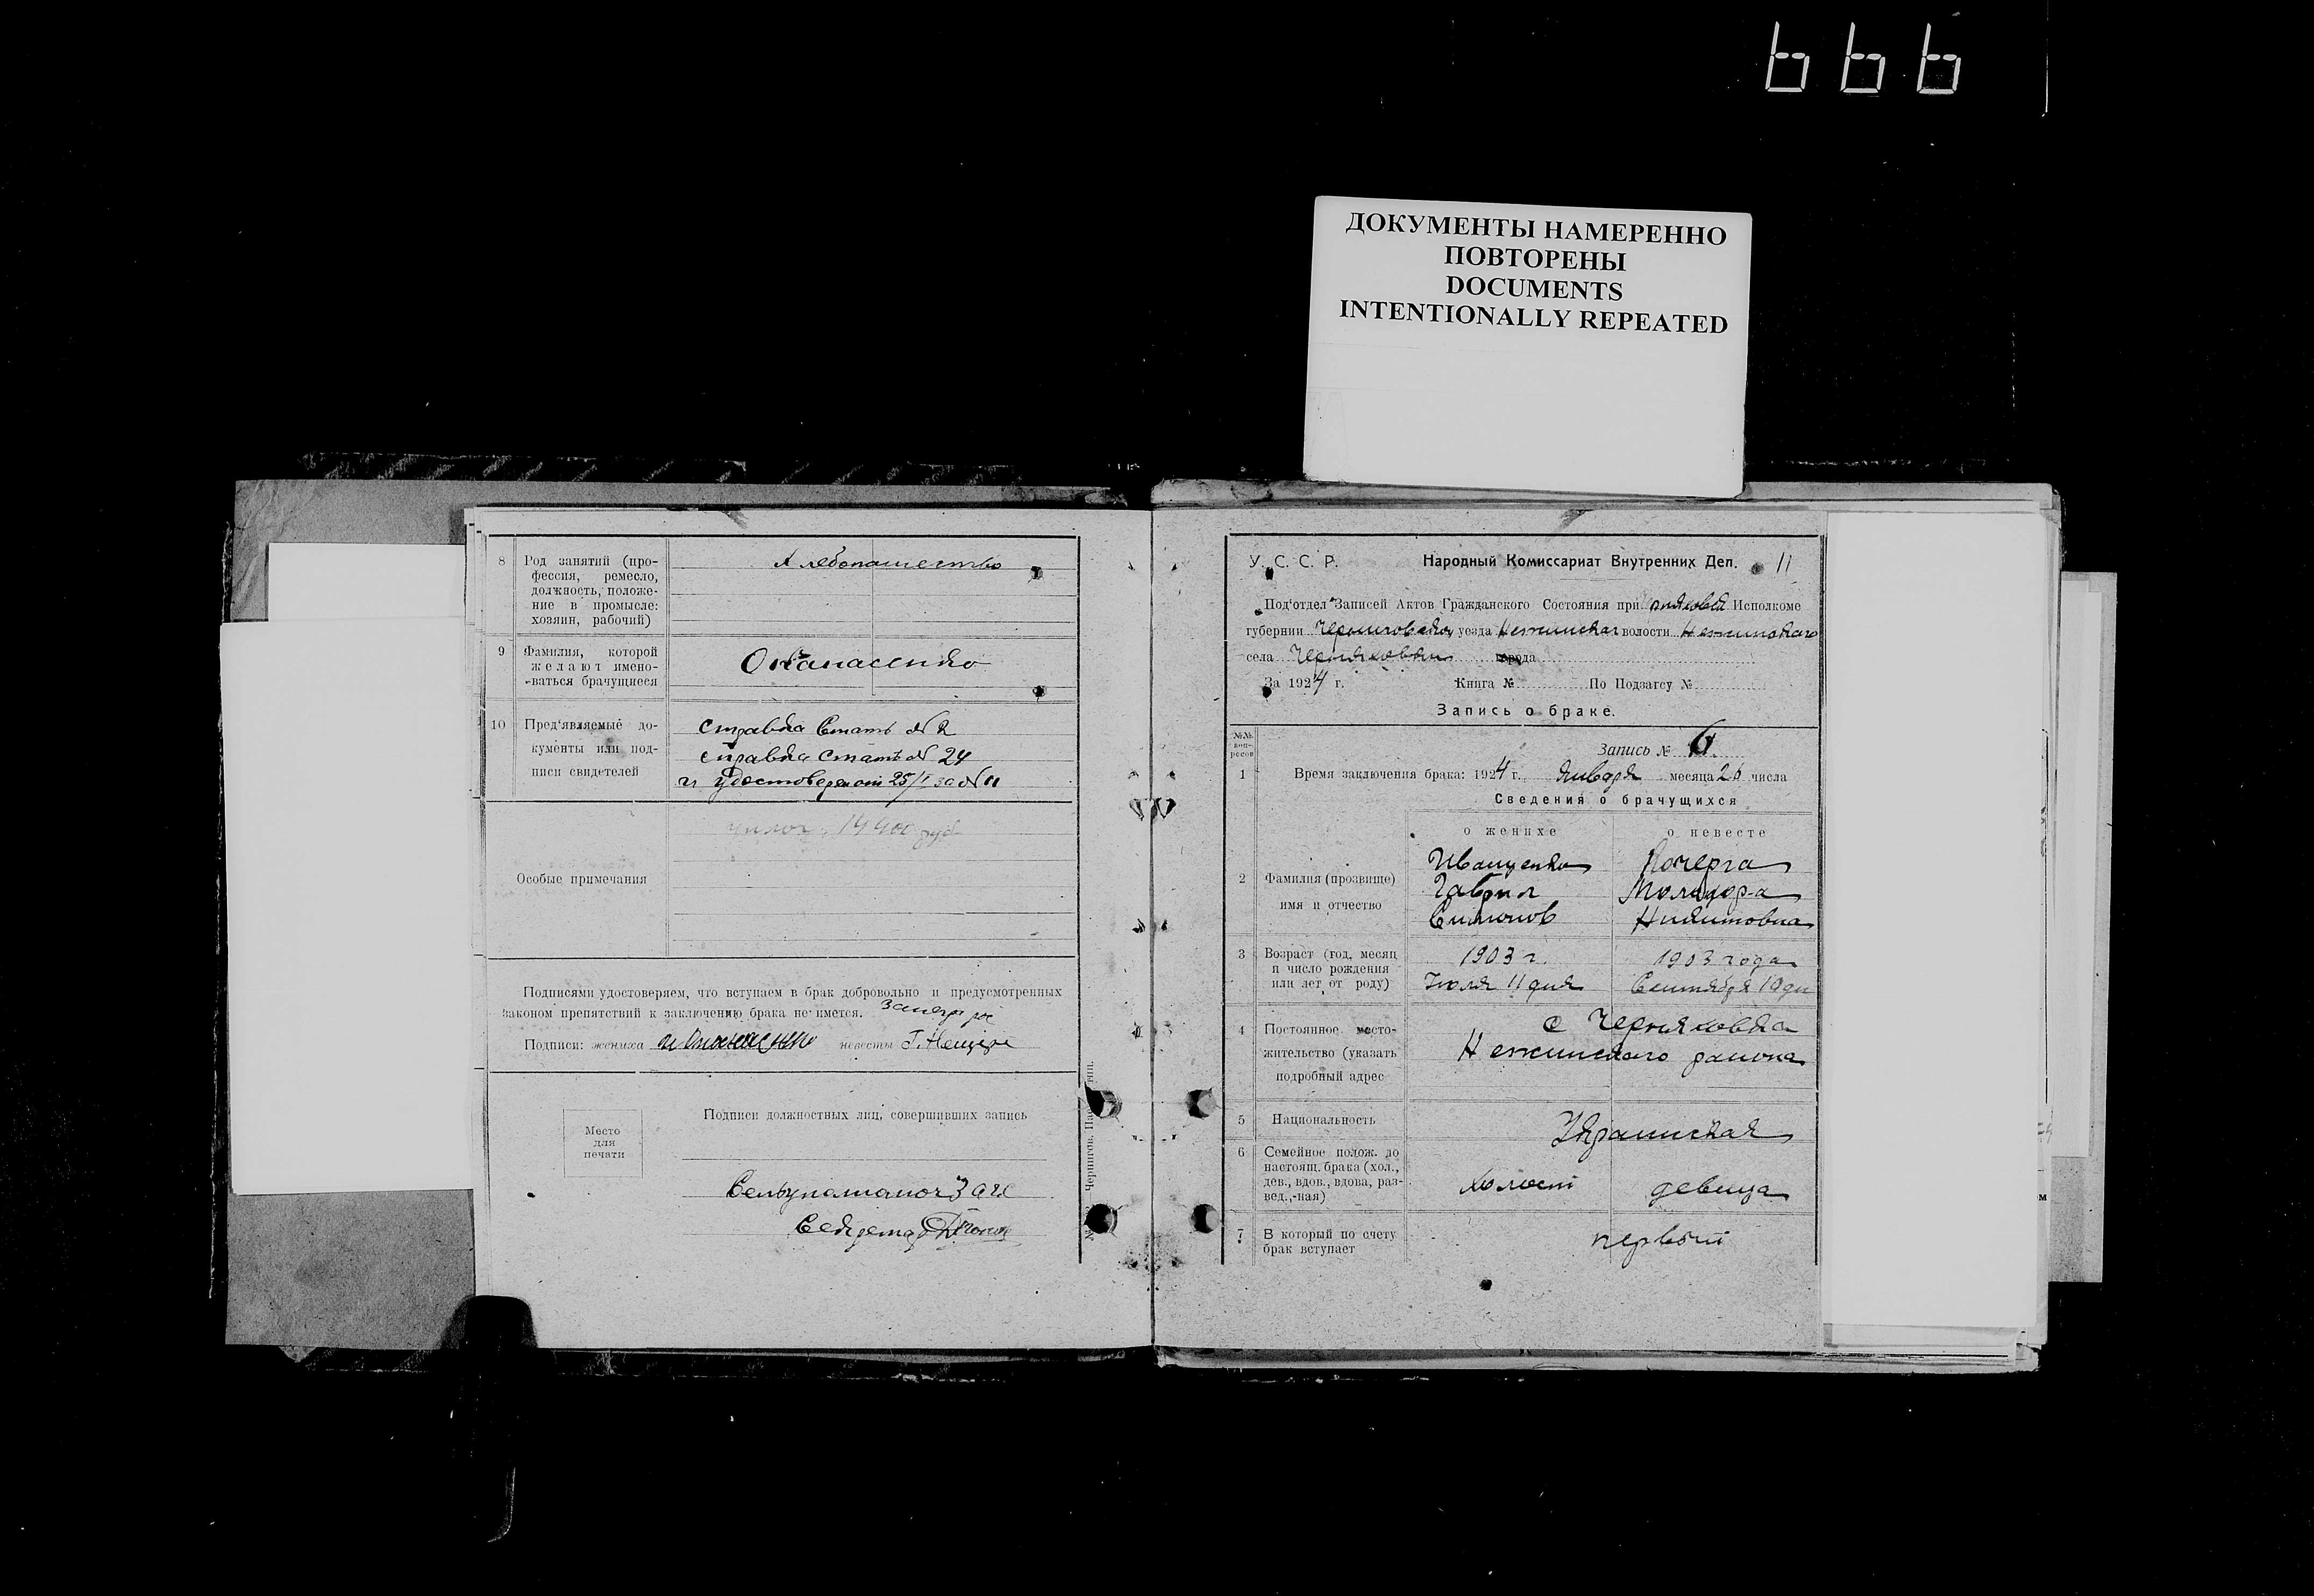 666
ДОКУМЕНТЫ НАМЕРЕННО
ПОВТОРЕНЫ
DOCUMENTS
INTENTIONALLY REPEATED
8 Род занятий (про-
фессия, ремесло,
должность, положе-
ние в промысле:
хозяин, рабочий)
Хлебопашество
9 Фамилия, которой
желают имено-
ваться брачущиеся
10 Пред'являемые до-
кументы или под-
писи свидетелей
справка Стать № 2
справка стать № 24
и удостоверен от 25/I за № 11
Особые примечания
14400 руб
Подписями удостоверяем, что вступаем в брак добровольно и предусмотренных
законом препятствий к заключению брака не имется.
Подписи: жениха невесты
Место
для
печати
Подписи должностных лиц, совершивших запись
Секретарь
У. С. С. Р. Народный Комиссариат Внутренних Дел. 11
Под'отдел Записей Актов Гражданского Состояния при Исполкоме
губернии Черниговской уезда Нежинская волости Нежинского
села Черняховки города
За 1924 г. Книга № По Подзагсу №
Запись о браке.
№№ воп-
росов
Запись № 6.
1 Время заключения брака: 1924 г. января месяца 26 числа
Сведения о брачущихся
о женихе о невесте
2 Фамилия (прозвище)
имя и отчество
Иващенко
Гаврил
Симонов
Кочерга
Никитовна
3 Возраст (год, месяц
и число рождения
или лет от роду)
1903 г.
Июля 11 дня
1903 года
Сентября 10 дн
4 Постоянное место-
жительство (указать
подробный адрес
с Черняховка
Нежинского района
5 Национальность
Украинская
6 Семейное полож. до
настоящ. брака (хол.,
дев., вдов., вдова, раз-
вед.,-ная)
холост девица
7 В который по счету
брак вступает
первый